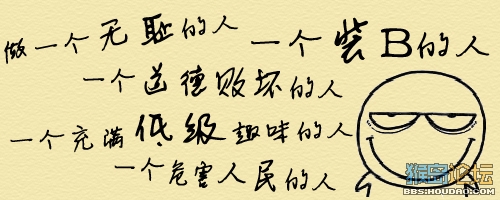 做一个无耻的人
一个装B的人
一个道德败坏的人
一个充满低级趣味的人
一个危害人民的人
猴岛论坛
BBS.HOUDAO.COM